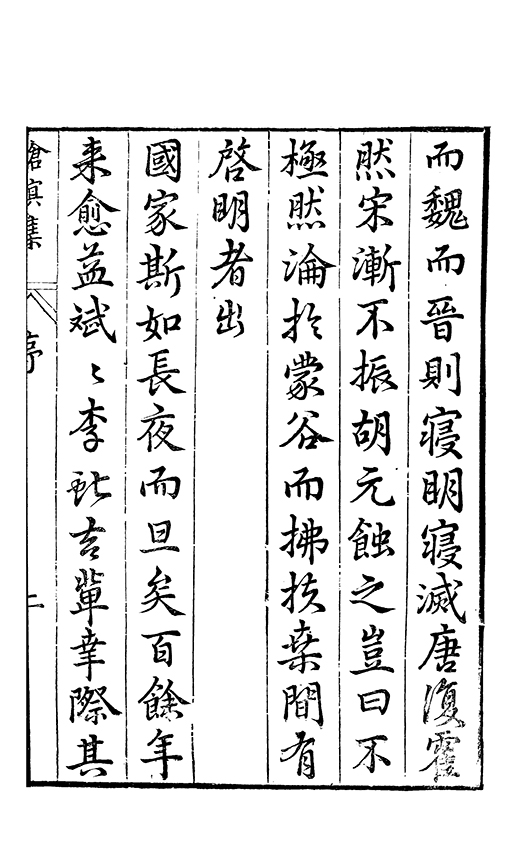 而魏而晉則寢明寢滅唐復霍
然宋漸不振胡元蝕之豈曰不
極然淪於蒙谷而拂扶桒間有
啓明者出
國家斯如長夜而旦矣百餘年
来愈益斌〻李獻吉輩幸際其
滄溟集
序
二